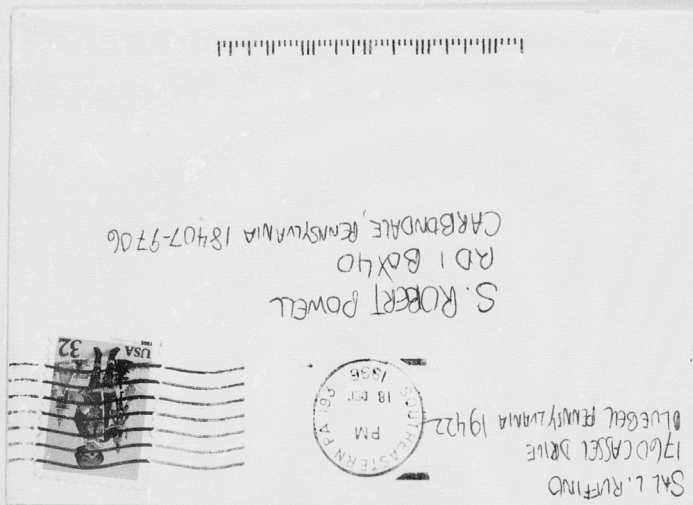 SAL L. RUFFINO
1760 CASSEL DRIVE
BLUEBELL PENNSYLVANIA 19422
SOUTHEASTERN PA 193
PM
18 DEC
1996
USA
32
1995
S. ROBERT POWELL
RD 1 BOX 40
CARBONDALE, PENNSYLVANIA 18407-9706